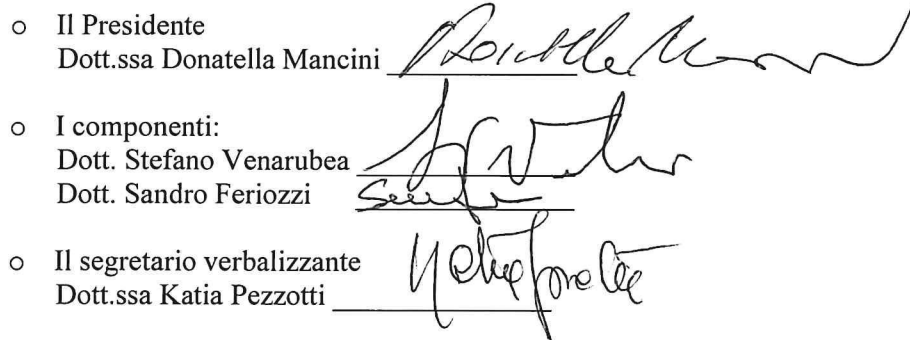 Il Presidente
Dott.ssa Donatella Mancini
I componenti:
Dott. Stefano Venarubea
Dott. Sandro Feriozzi
Il segretario verbalizzante
Dott.ssa Katia Pezzotti